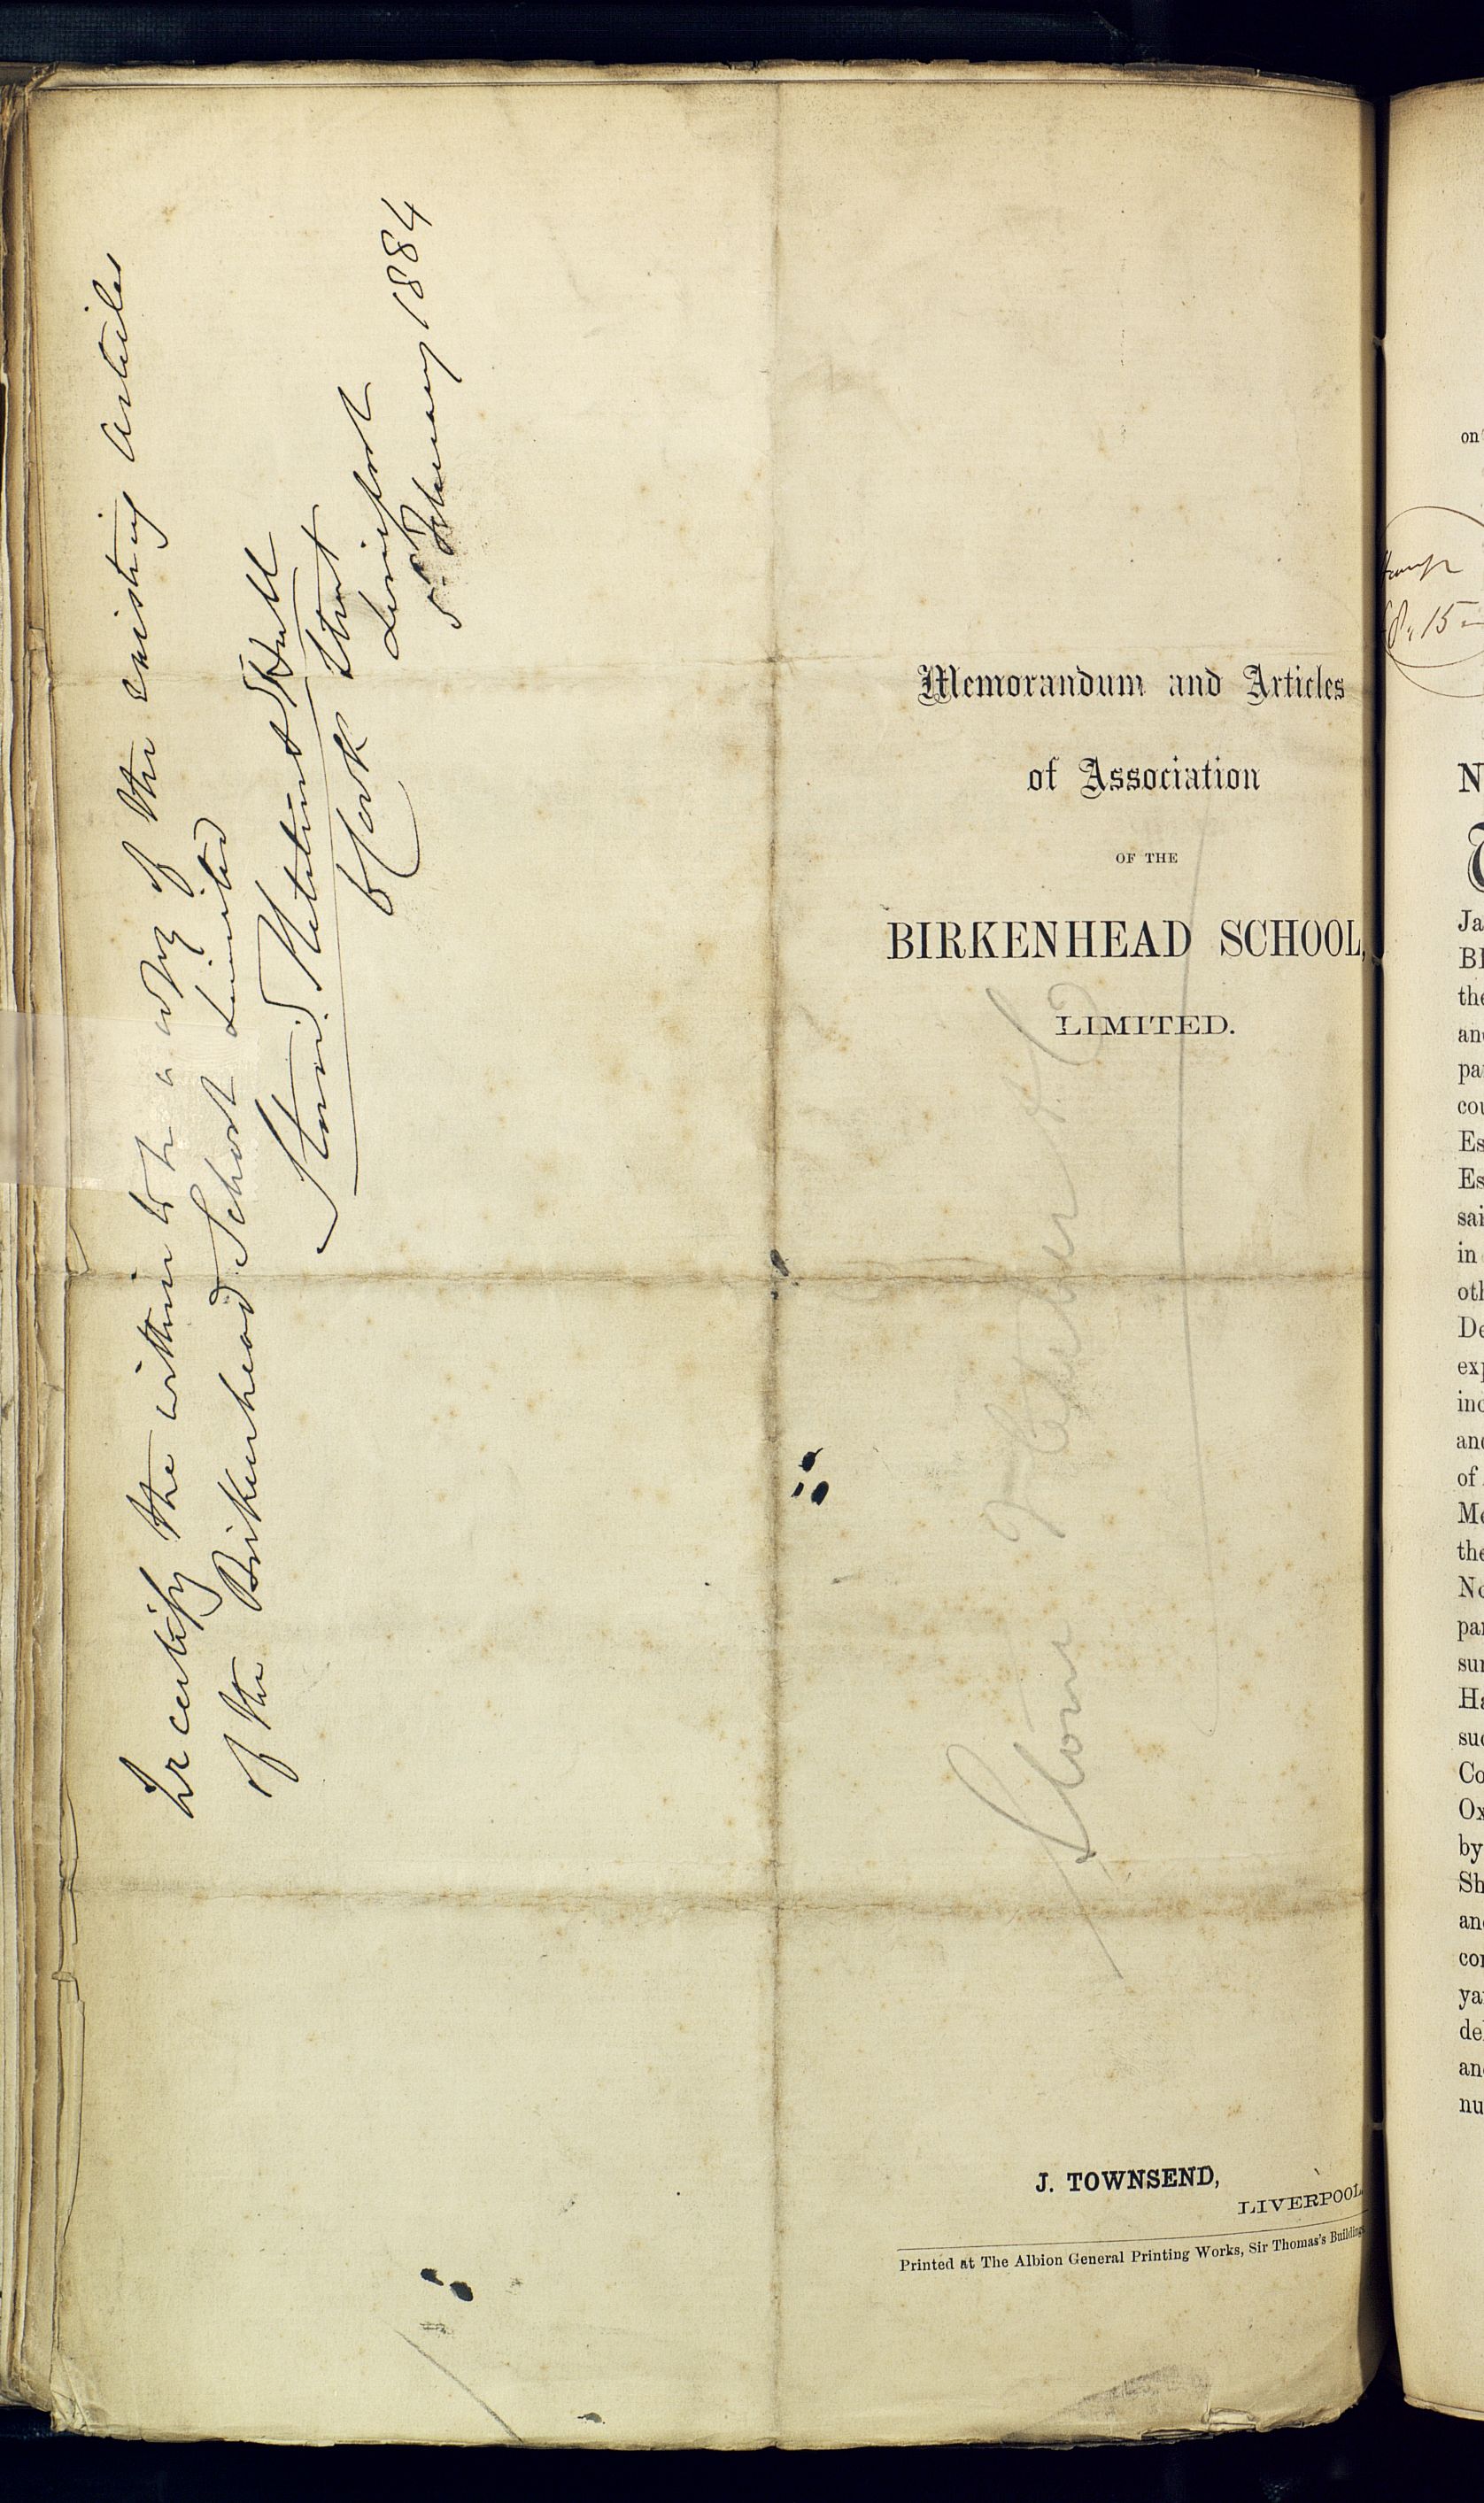 We certify the within to be a copy of the existing Articles
of the Birkenhead School Limited
Stone, Fletcher & Hull
Cook Street
Liverpool
5 February 1884
Memorandum and Articles
of Association
OF THE
BIRKENHEAD SCHOOL,
LIMITED.
Stone Fletcher &
J. TOWNSEND,
LIVERPOOL
Printed at The Albion General Printing Works, Sir Thomas's Buildings
on
8, 15
N
Ja
BI
the
and
pa
cou
Es
Es
sai
in
oth
De
exp
inc
and
of
Me
the
No
par
sur
Ha
suc
Co
Ox
by
Sh
and
con
ya
del
and
nu